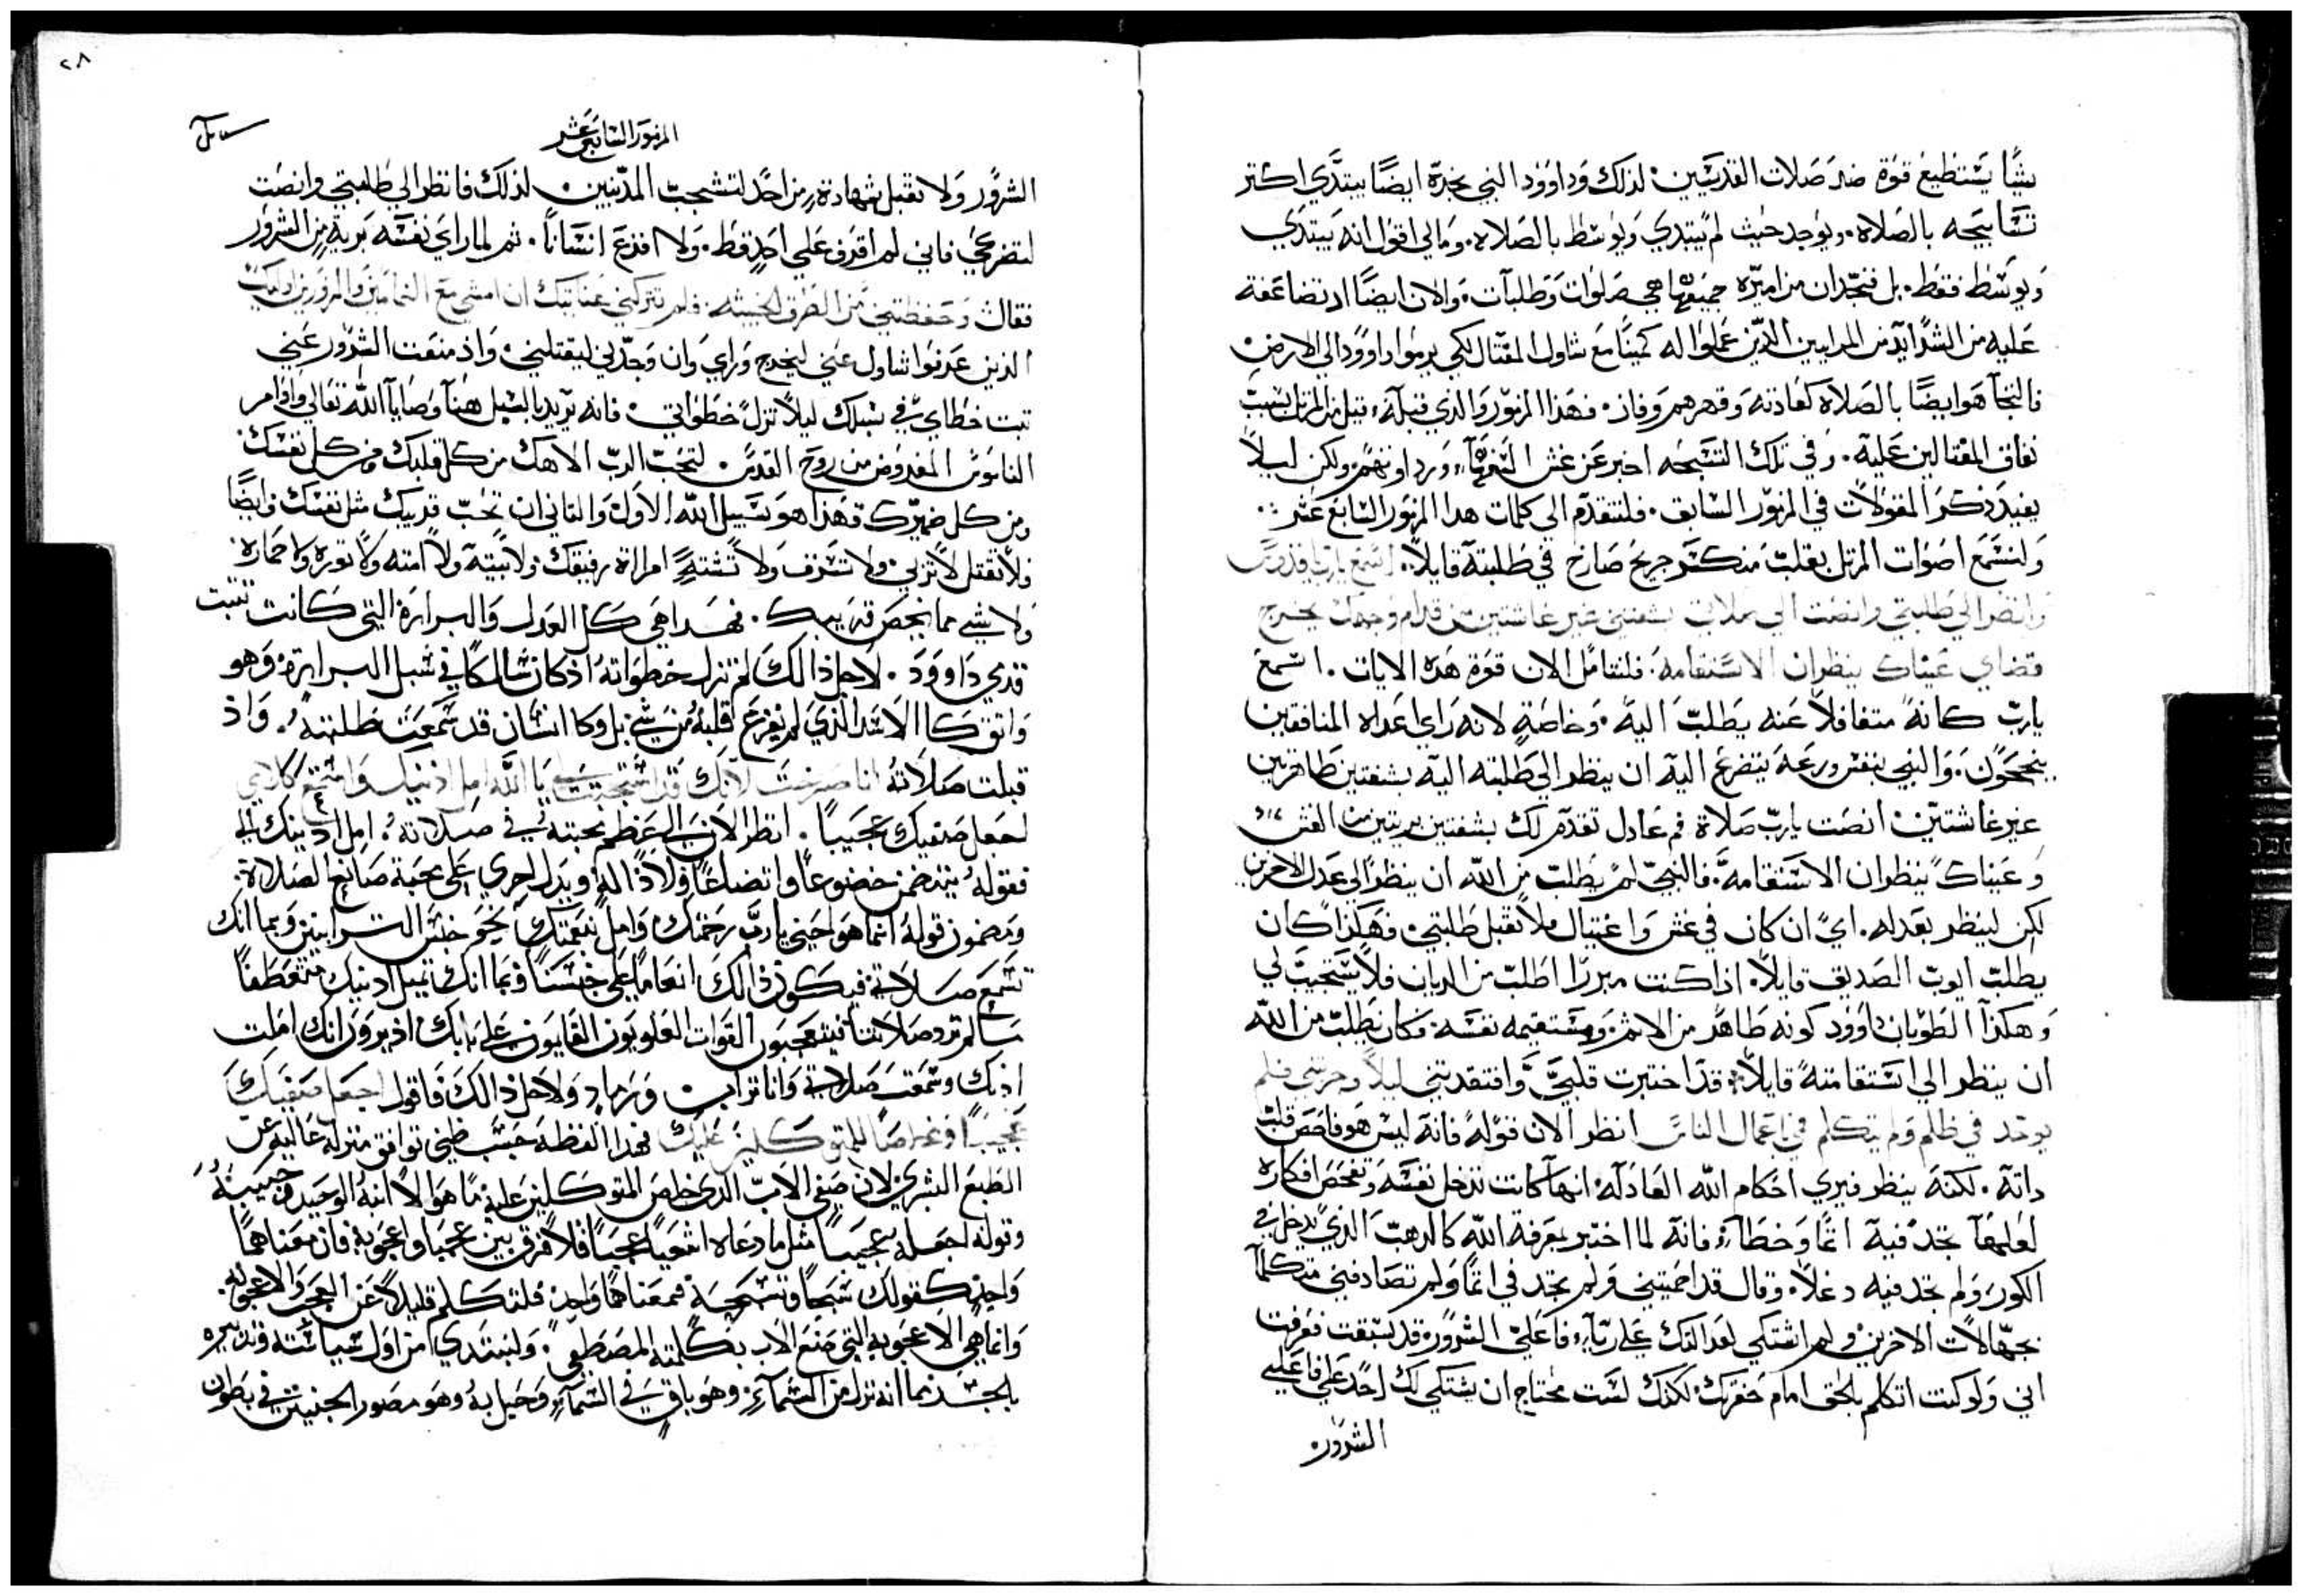 شًا يستطيع قوة ضد صلات القديسين. لذلك وداوود النبي نجدة ايضًا يبتدي اكتر
تسابيحه بالصلاه. ويوجد حيث لم يبتدي ويوسط بالصلاه. ومالي اقول انه يبتدي
ويوسط فقط. بل فنجد ان مزاميره جميعها هي صلوات وطلبات. والان ايضًا اد تضاعفة
عليه من الشدايد من المرايين الدين عملوا له كمينًا مع شاول المقتال لكي يرموا داوود الي الارض
فالتجا هو ايضًا بالصلاه كعادته وقهرهم وفاز. فهذا المزمور والذي قبله قيل من المرتل بسبب
نفاق المغتالين عليه. وفي تلك التسبحه اخبر عن غش ورداوتهم. ولكن ليلاً
يفيد دكر المقولات في المزمور السابق. فلنتقدم الي كلمات هدا المزمور السابع عشر:
ولنسمع اصوات المرتل بقلب منكسر جريح صارخ في طلبته قايلاً. اسمع يارب قدوس
وانظر الي طلبتي وانصت الي صلاتي بشفتين غير غاشتين من قدام وجهك يخرج
قضاي عيناك ينظران الاستقامه. فلنتامل الان قوة هده الايات. اسمع
يارب كانه متغافلاً عنه يطلب اليه. وخاصة لانه راي اعداه المنافقين
ينجحون. والنبي بنفس ورعه يتضرع اليه ان ينظر الي طلبته اليه بشفتين طاهرتين
غير غاشتين. انصت يارب صلاة فم عادل تقدم لك بشفتين بريتين من الغش
وعيناك ينظران الاستقامة. فالنبي لم يطلب من الله ان ينظر الي عدل الاخرين
لكن لينظر بعدله. اي ان كان في غش واغتيال فلا تقبل طلبتي. فهكذا كان
يطلب ايوب الصديق قايلاً. اذا كنت مبررًا اطلب من الديان فلا يستجيب لي
وهكذا الطوبان داوود كونه طاهر من الاثم. ومستقيمه نفسه. فكان يطلب من الله
ان ينظر الي استقامته قايلاً. قد اختبرت قلبي وافتقدتني ليلاً وجربتني فلم
يوجد في ظلم ولم يتكلم فمي باعمال الناس انظر الان قوله فانه ليس هو فاحص قلب
داته. لكنه ينظر فيري احكام الله العادله. انها كانت تدخل نفسه وتفحص افكاره
لعلها تجد فيه اثمًا وخطآء. فانه لما اختبر بمعرفة الله كالدهب الذي يدخل في
الكور ولم تجد فيه دغلاً. وقال قد احميتني ولم تجد في اثمًا ولم تصادفني متكلمًا
بجهالات الاخرين. ولم اشتكي لعدالتك علي رياء. فاعلي الشرور. قد سبقت فعرفت
اني ولو كنت اتكلم بالحق امام حضرتك. لكنك لست محتاج ان يشتكي لك احد علي فاعلي
الشرور.
٢٨
المزمور السابع عشر
الشرور ولا تقبل شهادة من احد لتشجب المدنبين. لذلك فانظر الي طلبتي وانصت
لتضرعي فاني لم اقدف علي احد قط. ولا افدع انسانًا. ثم لما راي نفسه برية من الشرور
فقال وحفظتني من الطرق الخبيثه فلم تتركني عنايتك ان امشي مع النمامين والمزورين اوليك
الذين عرفوا شاول عني ليخرج وراي وان وجدني ليقتلني. واذ منعت الشرور عني
تبت خطاي في سبلك ليلاً تزل خطواتي. فانه يريد بالسبل هنا وصايا الله تعالي واوامر
الناموس المفروض من روح القدس. لتحب الرب الاهك من كل قلبك ومن كل نفسك
ومن كل ضميرك فهذا هو سبيل الله الاول والثاني ان تحب قريبك مثل نفسك وايضًا
ولا تقتل لا تزني. ولا تسرق ولا تشتهي امراة رفيقك ولا بيته ولا امته ولا توره ولا حماره
ولا شي مما يخص قريبك. فهدا هي كل العدل والبرارة التي كانت تتبت
قدمي داوود. لاجل ذالك لم تزل خطواته اذ كان سالكًا في سبل البرارة. وهو
واتق كالاسد الذي لم يفزع قلبه من شي بل وكانسان قد سمعت طلبته. واذ
قبلت صلاته انا صرخت لانك قد استجبت لي يا الله امل اذنيك واسمع كلامي
لجعل صفيك عجيبًا. انظر الان الي عظم محبته في صلاته. امل ادنيك الي
فقوله يتضمن خضوعًا واتضاعًا ولاذا الله ويدل لحري علي محبة صانع الصلاة.
ومضمون قوله انما هو احيني يارب رحمتك وامل نعمتك نحو جنس الترابيين وبما انك
تسمع صلاتي. فيكون ذالك انعامًا علي جنسنا وبما انك تميل ادنيك متعطفًا
لم ترد صلاتنا فيتعجبون القوات العلويون القايمون علي بابك اذ يرون انك املت
اذنك وسمعت صلاتي وانا تراب ورماد ولاجل ذالك فاقول اجعل صفيك
عجيبًا ومخلصًا للمتوكلين عليك فهدا الفظه حسب ظني توافق منزله عاليه عن
الطبع البشري لان صفي الاب الذي خلص المتوكلين عليه ما هو الا ابنه الوحيد حبيبه
وقوله اجعله عجيبًا مثل ما دعاه اشعيا عجيبًا فلا فرق بين عجيبًا واعجوبة. فان معناهما
واحد كقولك شبحًا وتسبحه فمعناهما واحد. فلنتكلم قليلاً عن العجب والاعجوبه.
وانما هي الاعجوبه التي صنع الاب بكلمته المصطفي. ولنبتدي من اول سياسته وتدبيره
بالجسد. بما انه نزل من السماء وهو باقي في السماء. وحبل به وهو مصور الجنين في بطون